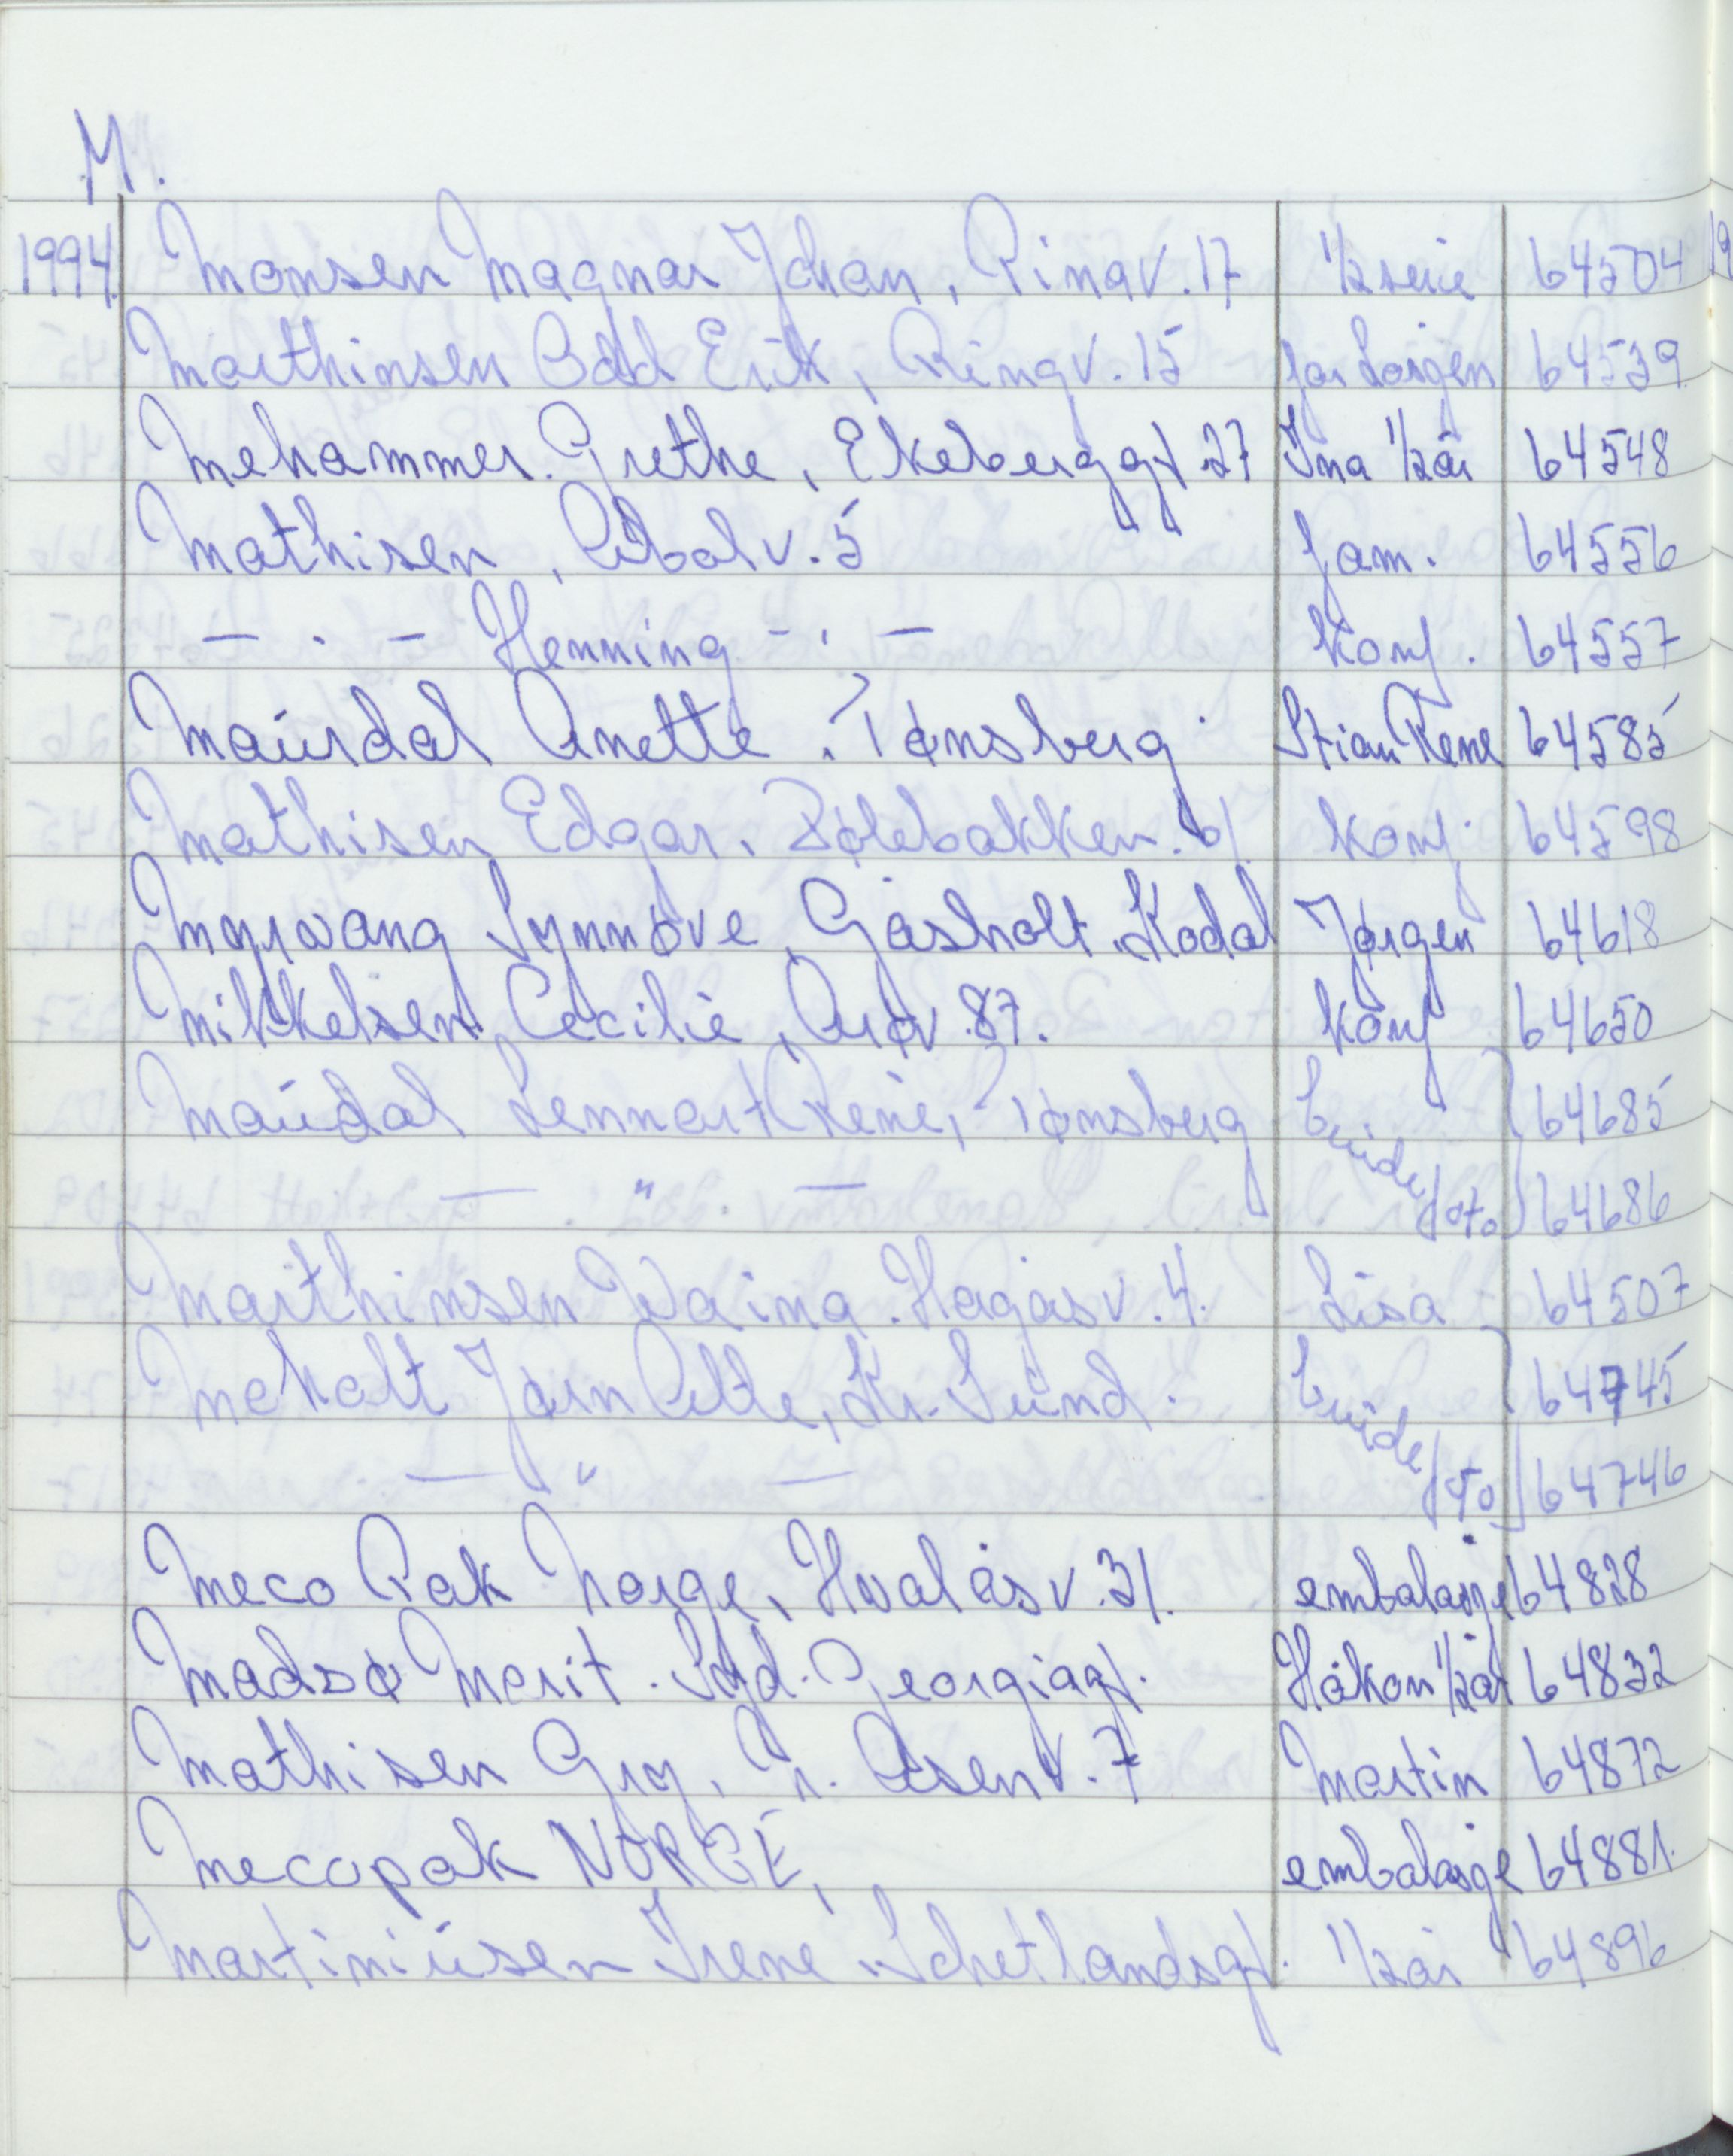 M.
1994. Monsen Magnar Johan, Rinav. 17 1/2 serie 64504
Marthinsen Odd Erik, Ringv. 15 Jørgen 64539
Mehammer Grethe, Ekeberggt 27 Ina 1/2 år 64548
Mathisen, v. 5 fam. 64556
— · — Henning — · — konf. 64557
Maurdal Anette, Tønsberg Stian Rene 64585
Mathisen Edgar, Bølebakken. 61 konf. 64598
Myrvang Synnøve, Gåsholt, Kodal Jørgen 64618
Mikkelsen Cecilie, v. 87. konf 64650
Maurdal Lennart Rene, Tønsberg brude 64685
— " — foto 64686
Marthinsen Waina. Hagåsv. 4. Lisa 64507
Meholt Jørn Atle, Kr. Sund. brude 64745
— " — foto 64746
Meco Pak Norge, Hvalåsv. 31. embalasje 64828
Madsø Marit. Syd. Georgiagt. Håkon 1/2 år 64832
Mathisen Gry, N. Åsenv. 7 Martin 64872
Mecopak NORGE, embalasje 64881.
Martiniusen Irene, Schetlandsgt. 1/2 år 64896